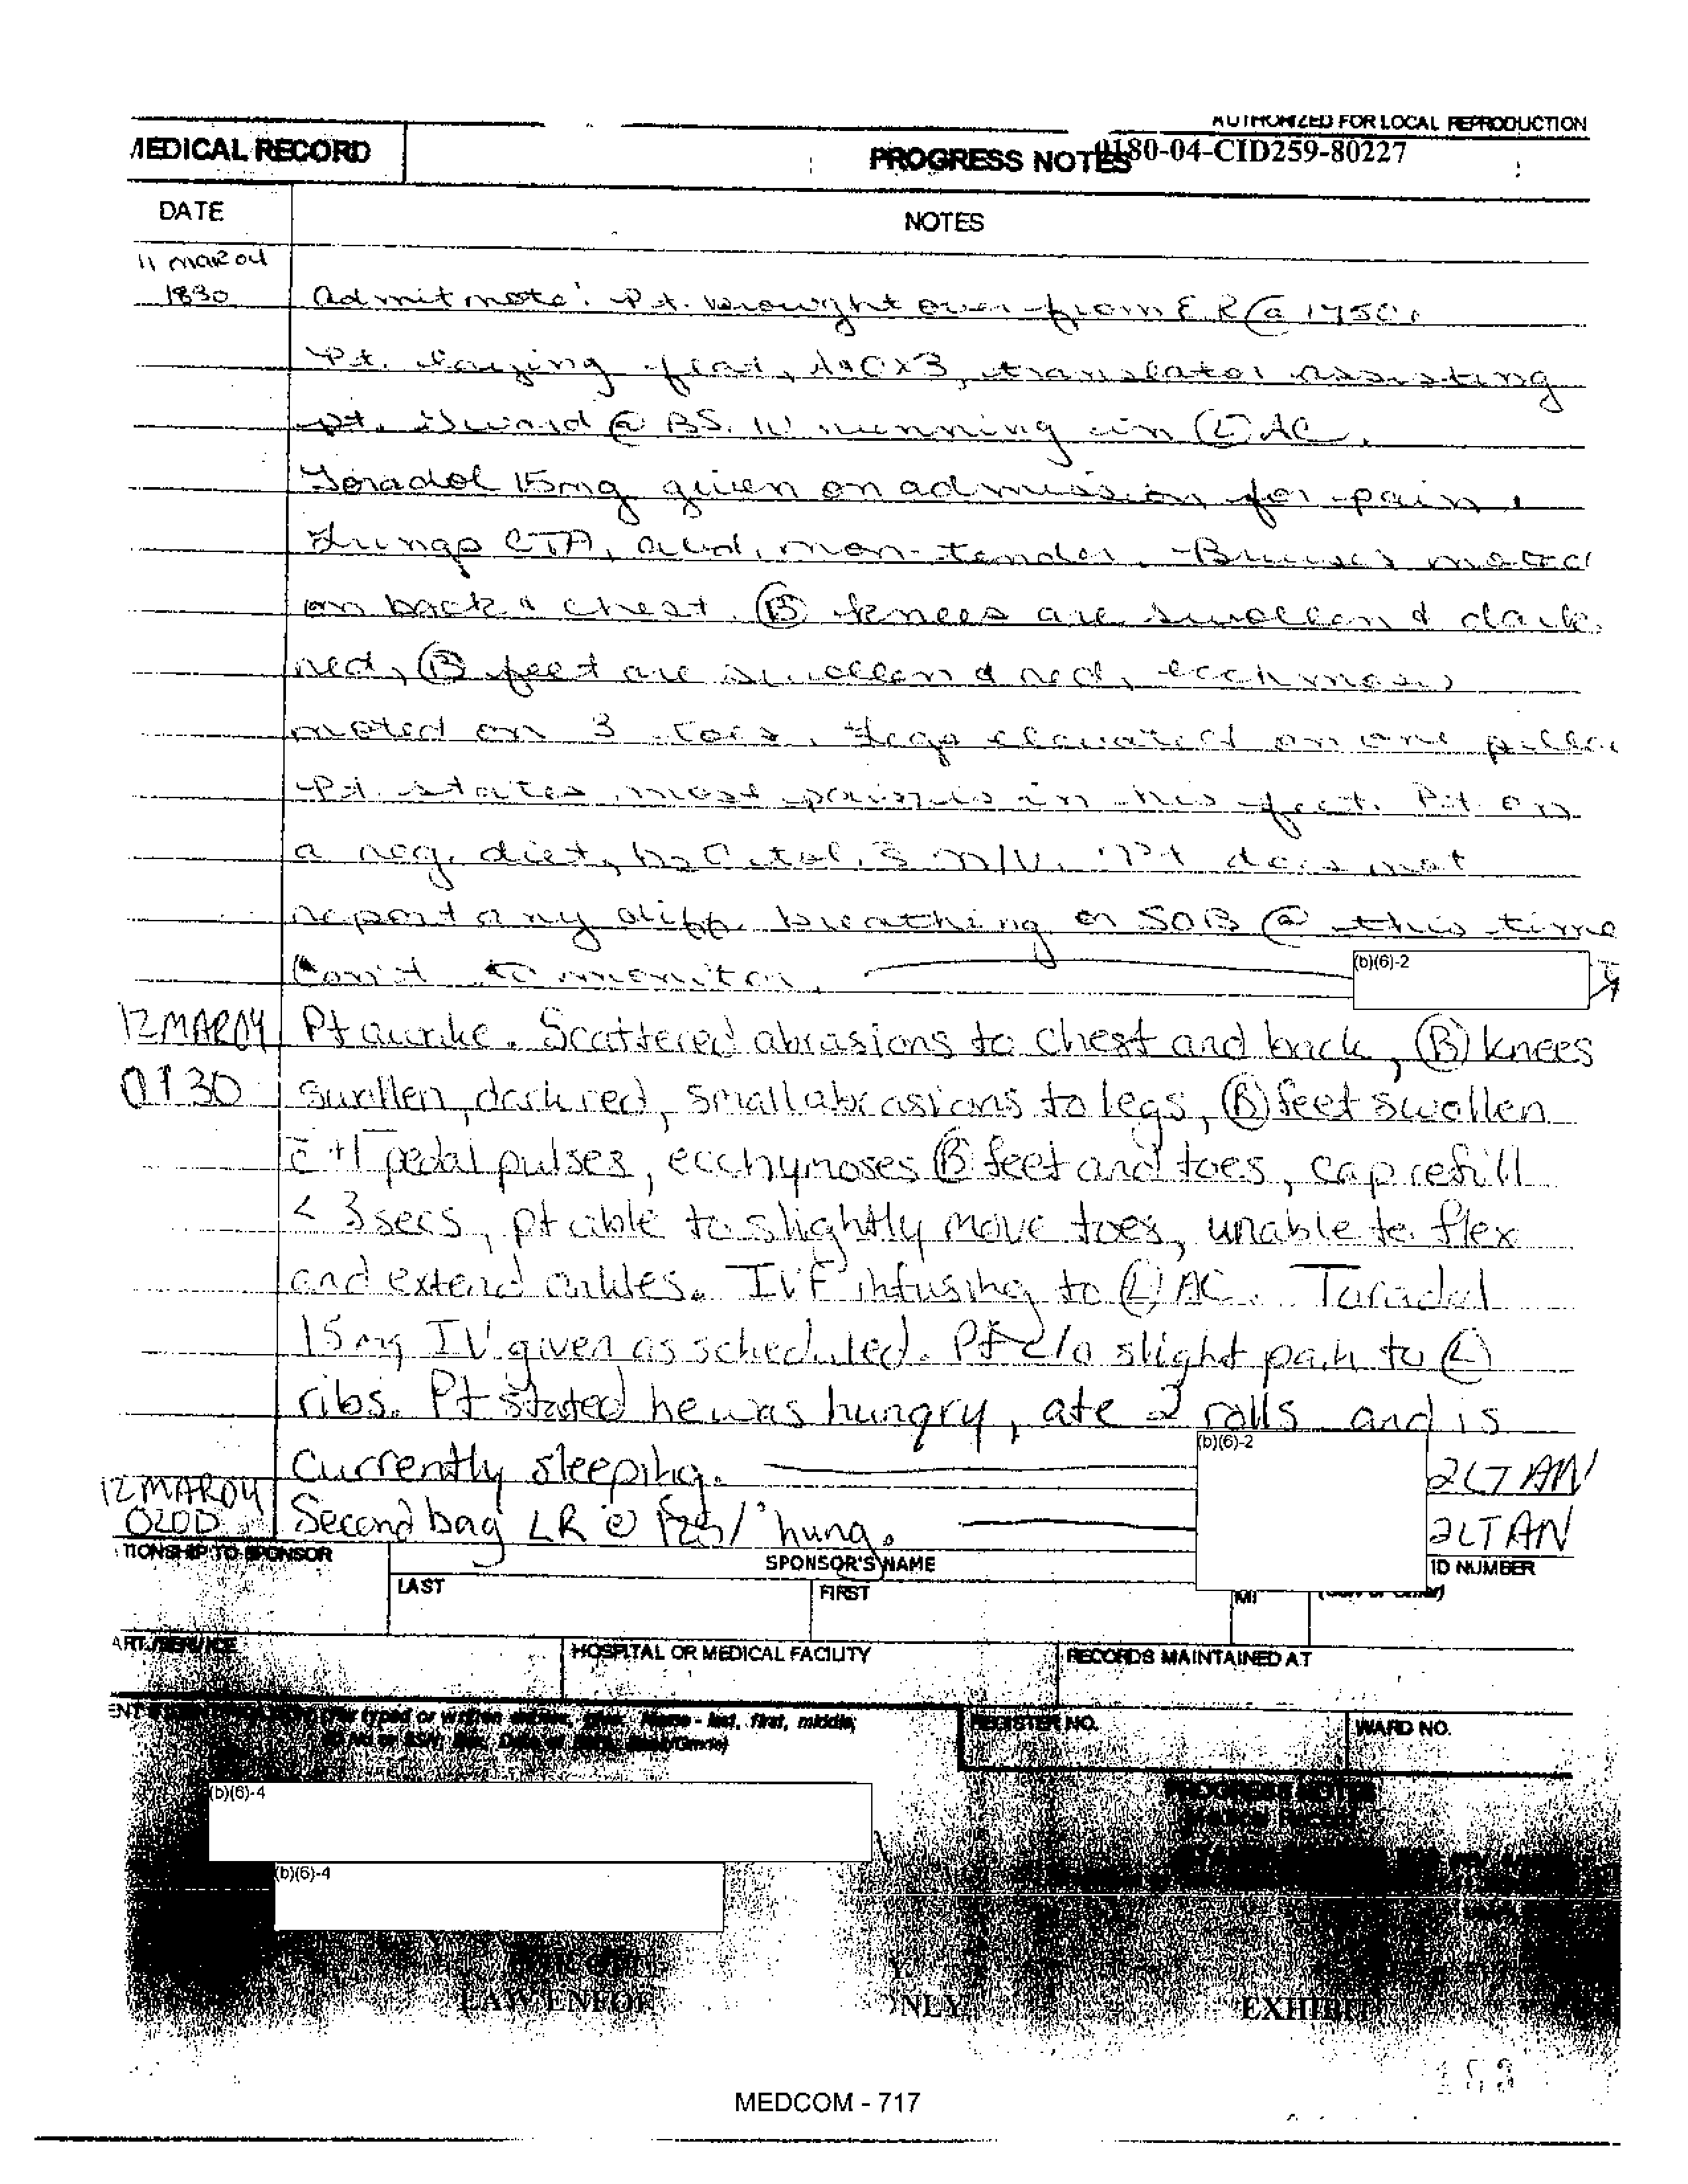 AUTHORIZED FOR LOCAL REPRODUCTION
MEDICAL RECORD
PROGRESS NOTES
0180-04-CID259-80227
DATE
NOTES
11 MAR 04
1830
Admit note: Pt. brought over from ER @ 1750.
Pt. laying flat, A&Ox3, translator assisting
pt. @ BS. IV running in (L) AC.
Toradol 15mg given on admission for pain.
Lungs CTA, abd. non-tender. Bruises noted
on back & chest. (B) knees are swollen & dark
red, (B) feet are swollen & red,
noted on 3 toes. Legs elevated on one
Pt. states most pain is in his feet. Pt on
a reg. diet, N/V. Pt does not
report any diff. breathing or SOB @ this time
Con't to monitor.
(b)(6)-2
12MAR04
0130
Pt awake. Scattered abrasions to chest and back, (B) knees
swollen, dark red, small abrasions to legs, (B) feet swollen
c̄ +1 pedal pulses, ecchymoses (B) feet and toes, cap refill
< 3 secs, pt able to slightly move toes, unable to flex
and extend ankles. IVF infusing to (L) AC. Toradol
15mg IV given as scheduled. Pt c/o slight pain to (L)
ribs. Pt stated he was hungry, ate 2 rolls and is
currently sleeping.
(b)(6)-2
2LT AN
12MAR04
0200
Second bag LR @ hung.
2LT AN
TIONSHIP TO SPONSOR
SPONSOR'S NAME
ID NUMBER
LAST
FIRST
MI
(SSN or Other)
ART./SERVICE
HOSPITAL OR MEDICAL FACILITY
RECORDS MAINTAINED AT
(For typed or written Name - last, first, middle;
REGISTER NO.
WARD NO.
(b)(6)-4
PROGRESS NOTES
Medical Record
(b)(6)-4
LAW ENFOR
ONLY
EXHIBIT
MEDCOM - 717